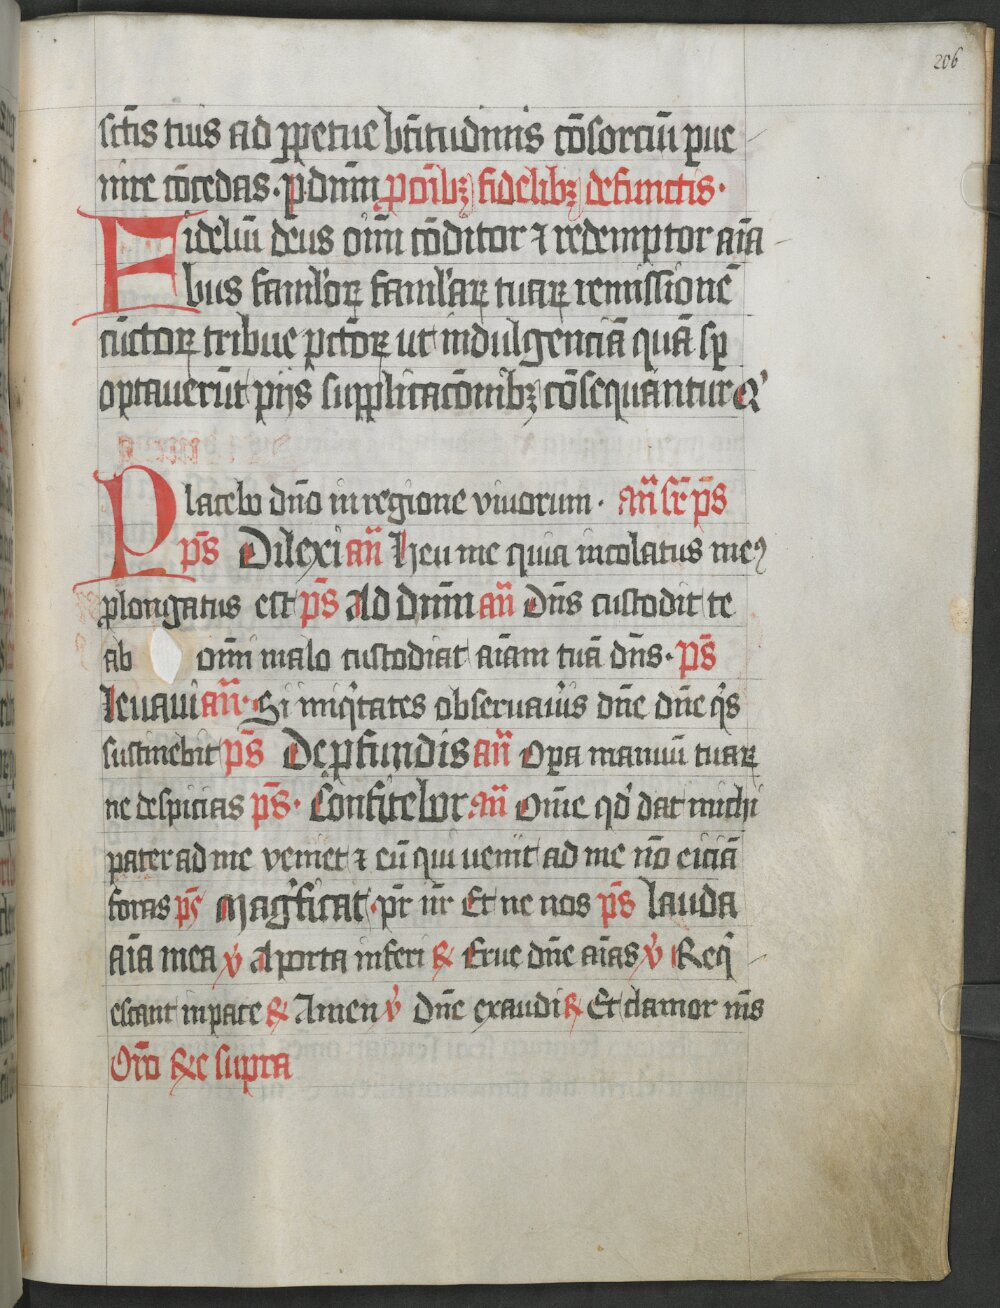 206
sctīs tuis ad ꝑpetue bt̄itudinis cōsorciū ꝑue
nire cōcedas · ꝑ dnm̄ ꝑ oīibꝫ fidelibꝫ defunctis ·
Fideliū deus oīm cōditor ⁊ redemptor aīa
bus famlorꝝ famlarꝝ tuaꝝ remissionē
cūctoꝝ tribue pctōꝝ ut indulgenciā quā sꝑ
optauerūt pijs supplicacōnibꝫ cōsequantur Q'
Placebo dn̄o in regione viuorum · an̄ sr̄ ps̄
ps̄ Dilexi an̄ Heu me quia incolatus meꝰ
ꝓlongatus est ps̄ Ad dnm̄ an̄ Dn̄s custodit te
ab om̄i malo custodiat aīam tuā dn̄s · ps̄
Leuaui an̄ · Si iniqͥtates obseruaūis dn̄e dn̄e qͥs
sustinebit ps̄ De ꝓfundis an̄ Opa manuū tuaꝝ
ne despicias ps̄ · Confitebor an̄ Om̄e qd' dat michi
pater ad me veniet ⁊ eū qui uenit ad me nō eiciā
foras ps̄ Magͥficat · pr̄ nr̄ Et ne nos ps̄ lauda
aīa mea ℣ A porta inferi ℟ Erue dn̄e aīas ℣ Req̄
escant in pace ℟ Amen ℣ Dn̄e exaudi ℟ Et clamor m̄s
Orō ℟e supra